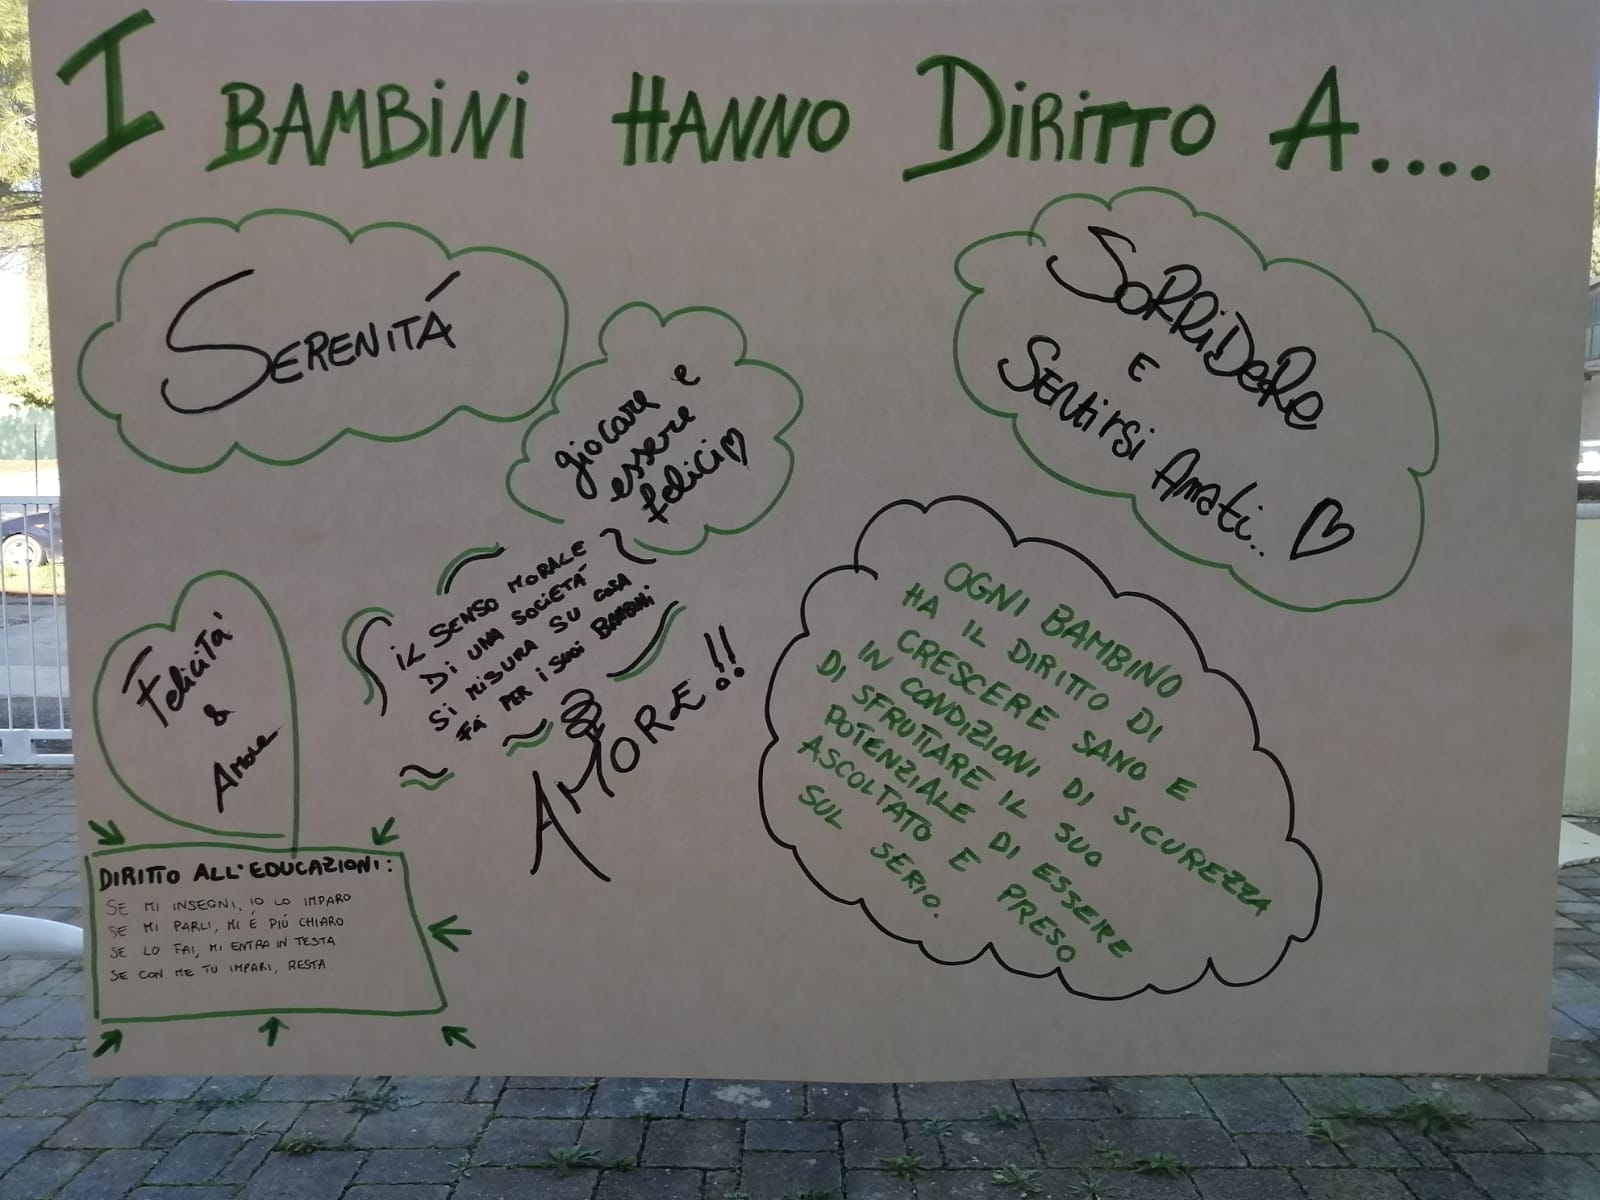 I BAMBINI HANNO DIRITTO A....
SERENITÁ
SORRIDERE
E
SENTIRSI AMATI..
giocare e
essere
felici
IL SENSO MORALE
DI UNA SOCIETÁ
SI MISURA SU COSA
FA PER I SUOI BAMBINI
AMORE!!
Felicitá
&
Amore
OGNI BAMBINO
HA IL DIRITTO DI
CRESCERE SANO E
IN CONDIZIONI DI SICUREZZA
DI SFRUTTARE IL SUO
POTENZIALE DI ESSERE
ASCOLTATO E PRESO
SUL SERIO.
DIRITTO ALL'EDUCAZIONI:
SE MI INSEGNI, IO LO IMPARO
SE MI PARLI, MI É PIÚ CHIARO
SE LO FAI, MI ENTRA IN TESTA
SE CON ME TU IMPARI, RESTA